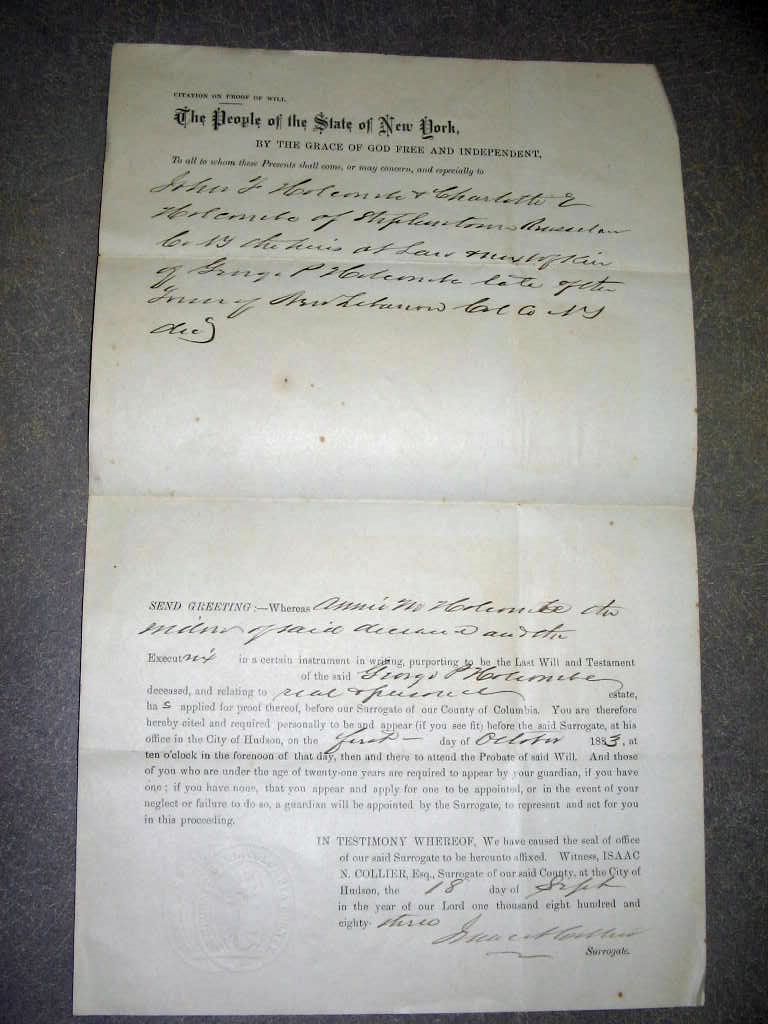 CITATION ON PROOF OF WILL.
The People of the State of New York,
BY THE GRACE OF GOD FREE AND INDEPENDENT,
To all to whom these Presents shall come, or may concern, and especially to
John F Holcombe & Charlotte E
Holcombe of Stephentown Rensselaer
Co NY the heirs at Law & next of kin
of George P Holcombe late of the
Town of New Lebanon Col Co NY
decd
SEND GREETING:—Whereas Annie M Holcombe the
widow of said deceased and the
Executrix in a certain instrument in writing, purporting to be the Last Will and Testament
of the said George P Holcombe
deceased, and relating to real & personal estate,
has applied for proof thereof, before our Surrogate of our County of Columbia. You are therefore
hereby cited and required personally to be and appear (if you see fit) before the said Surrogate, at his
office in the City of Hudson, on the first day of October 1883, at
ten o'clock in the forenoon of that day, then and there to attend the Probate of said Will. And those
of you who are under the age of twenty-one years are required to appear by your guardian, if you have
one; if you have none, that you appear and apply for one to be appointed, or in the event of your
neglect or failure to do so, a guardian will be appointed by the Surrogate, to represent and act for you
in this proceeding.
IN TESTIMONY WHEREOF, We have caused the seal of office
of our said Surrogate to be hereunto affixed. Witness, ISAAC
N. COLLIER, Esq., Surrogate of our said County, at the City of
Hudson, the 18 day of Sept
in the year of our Lord one thousand eight hundred and
eighty-three
Isaac N Collier
Surrogate.